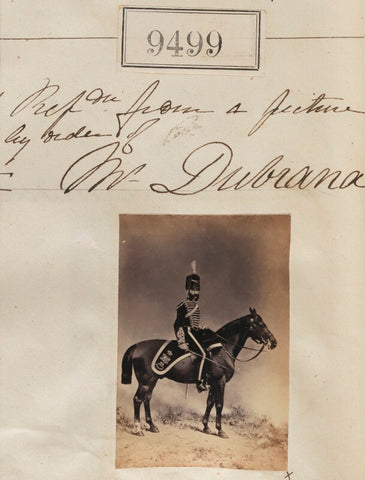 9499
Repdn from a picture
by order of
Mr Dubrana
x